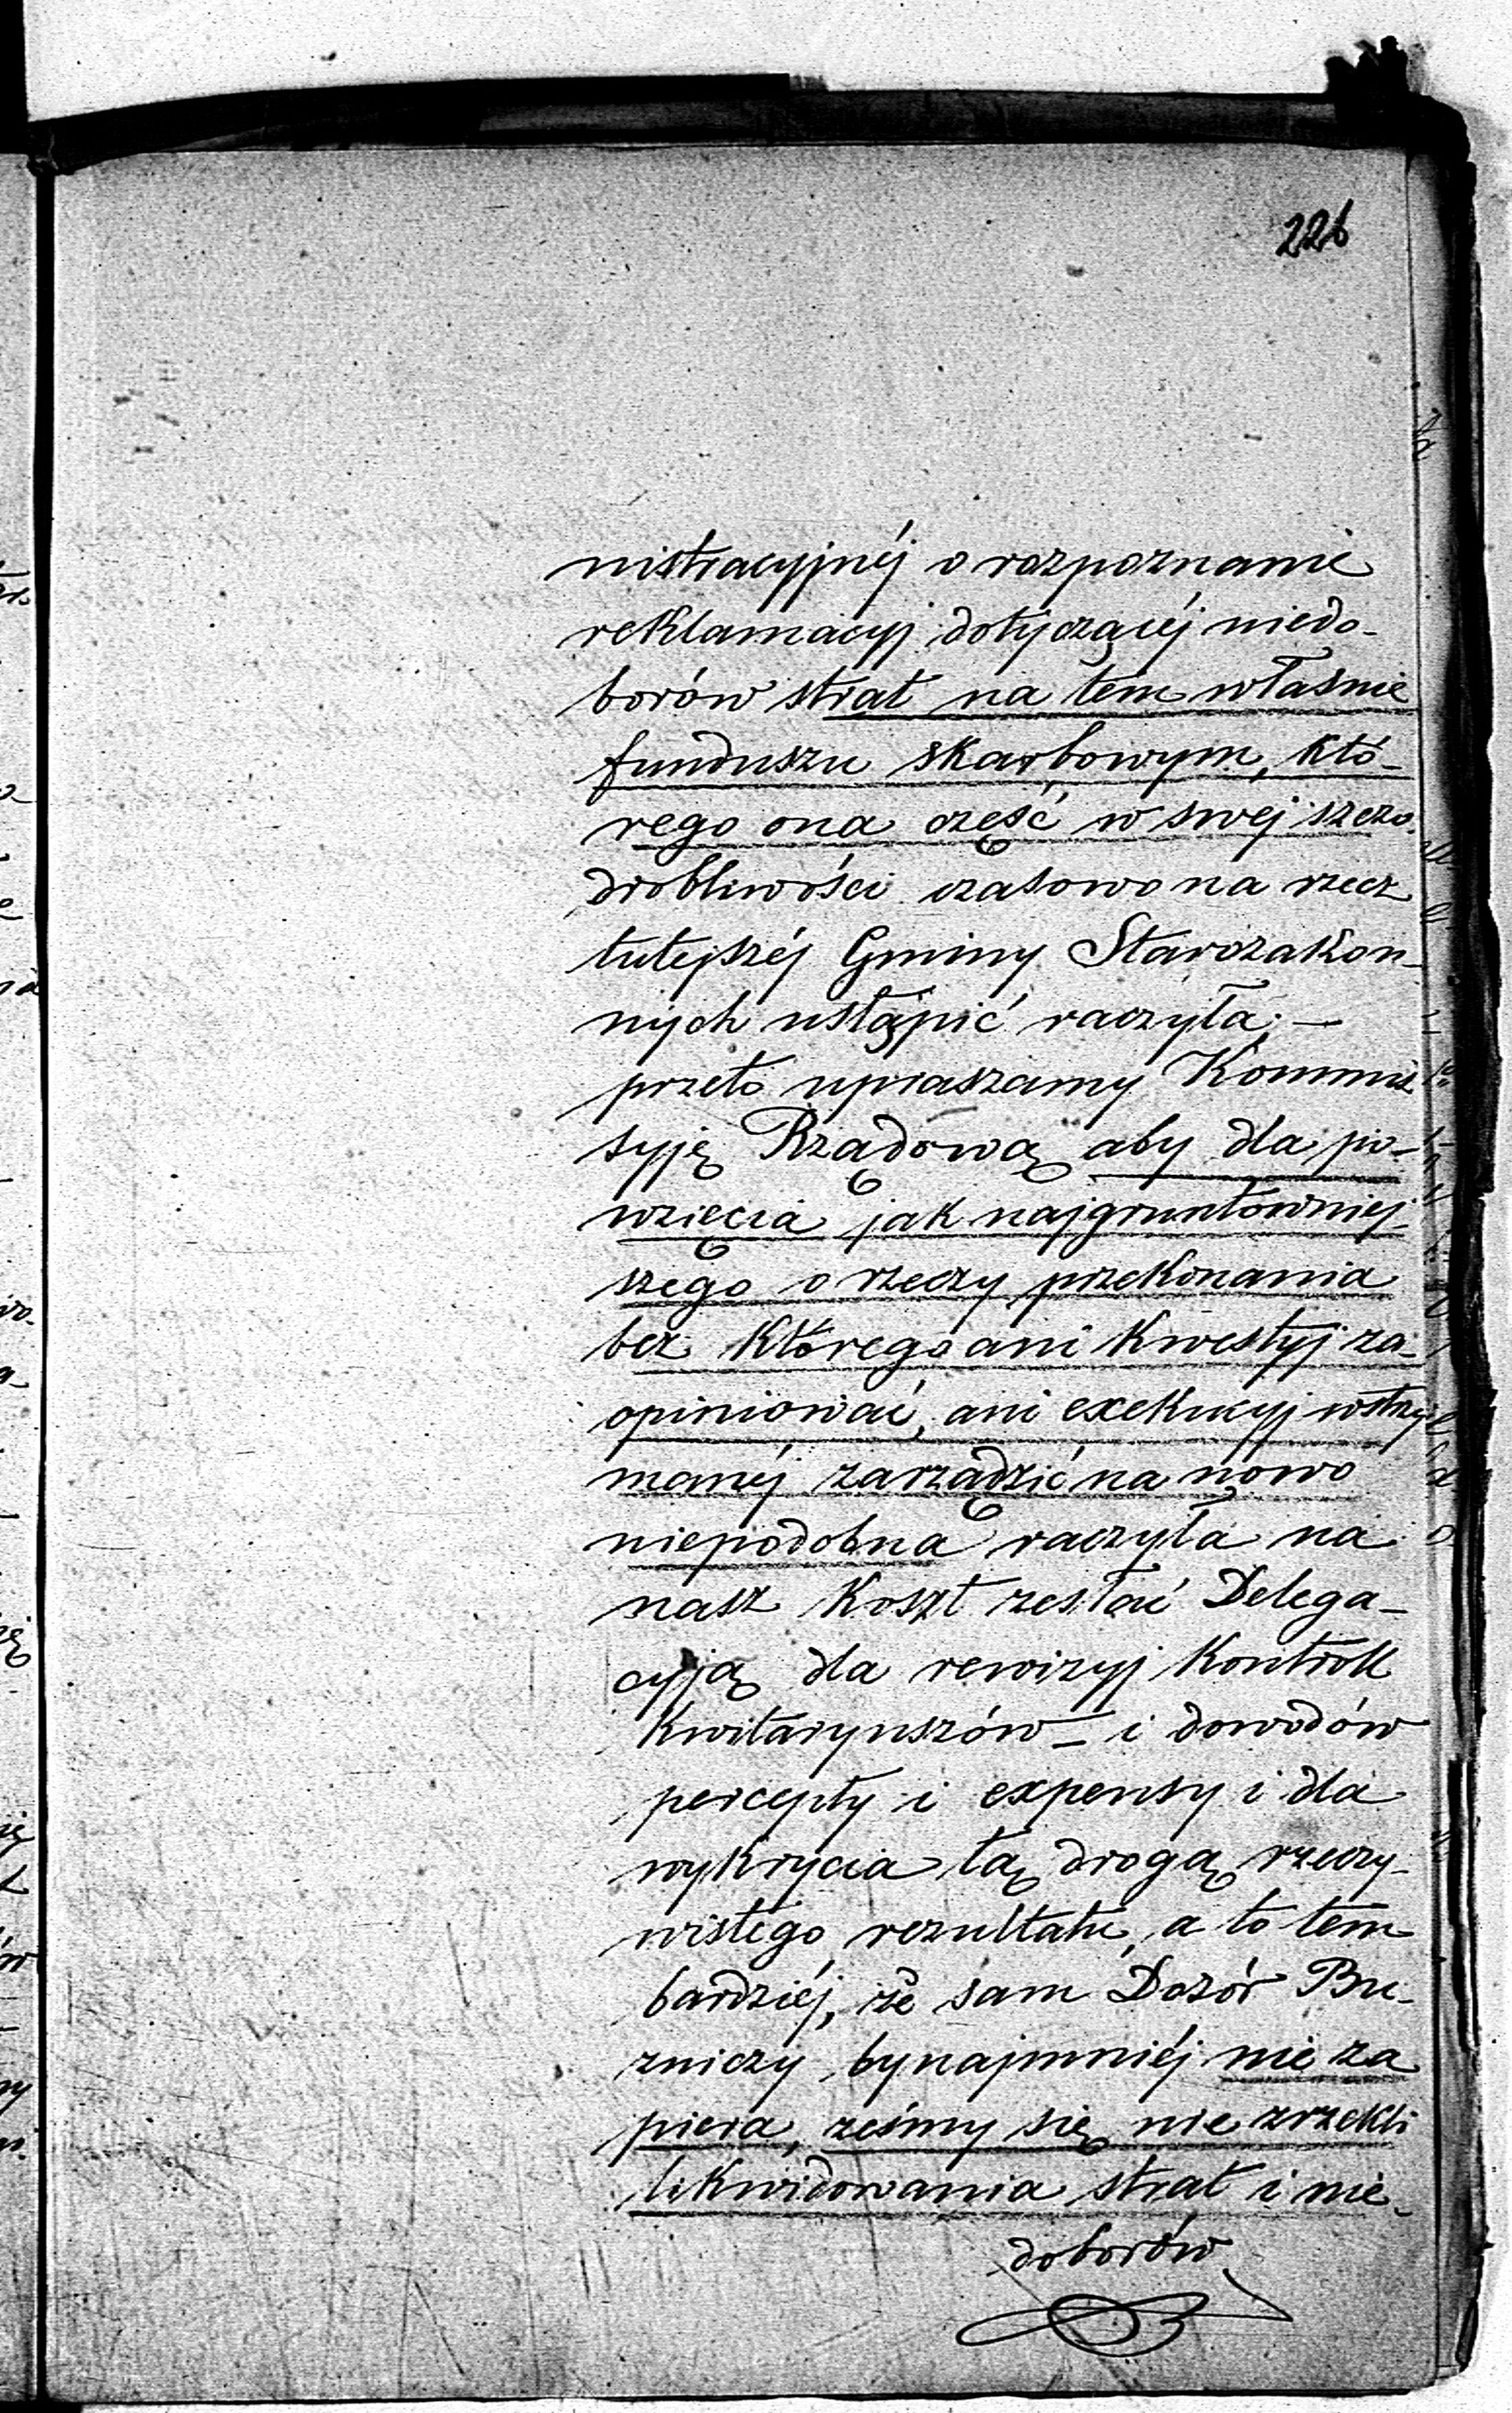 226
nistracyjnéj o rozpoznanie
reklamacyj dotyczącéj niedo-
borów strat na tem właśnie
funduszu skarbowym, któ-
rego ona część w swej szczo-
drobliwości czasowo na rzecz
tutejszéj Gminy Starozakon-
nych ustąpić raczyła; —
przeto upraszamy Kommis
syję Rządową aby dla po-
wzięcia jak najgruntowniej-
szego o rzeczy przekonania
bez którego ani kwestyj za-
opiniować, ani exekucyj wstrzy
manéj zarządzić na nowo
niepodobna raczyła na
nasz koszt zesłać Delega-
cyją dla rewizyj kontroll
kwitaryuszów — i dowodów
percepty i expensy i dla
wykrycia tą drogą rzeczy-
wistego rezultatu, a to tem
bardziéj, że sam Dozór Bu-
zniczy bynajmniéj nie za
piera, żeśmy się nie zrzekli
likwidowania strat i nie-
doborów